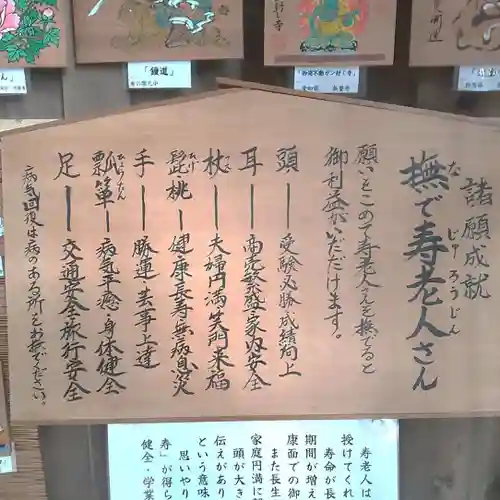 諸願成就
撫で寿老人さん
な
じゅろうじん
願いをこめて寿老人さんを撫でると
御利益がいただけます。
頭ー受験必勝・成績向上
耳ー商売繁盛・家内安全
杖ー夫婦円満・笑門来福
つえ
髭・桃ー健康長寿・無病息災
ひげ
手ー勝運・芸事上達
瓢箪ー病気平癒・身体健全
ひょうたん
足ー交通安全・旅行安全
病気回復は病のある所をお撫でください。
「鐘道」
寿老人は
授けてくれ
寿命が長
期間が増
康面での御
また長生
家庭円満に
頭が大き
伝えがあり
という意味
思いやり
寿」が得ら
健全・学業